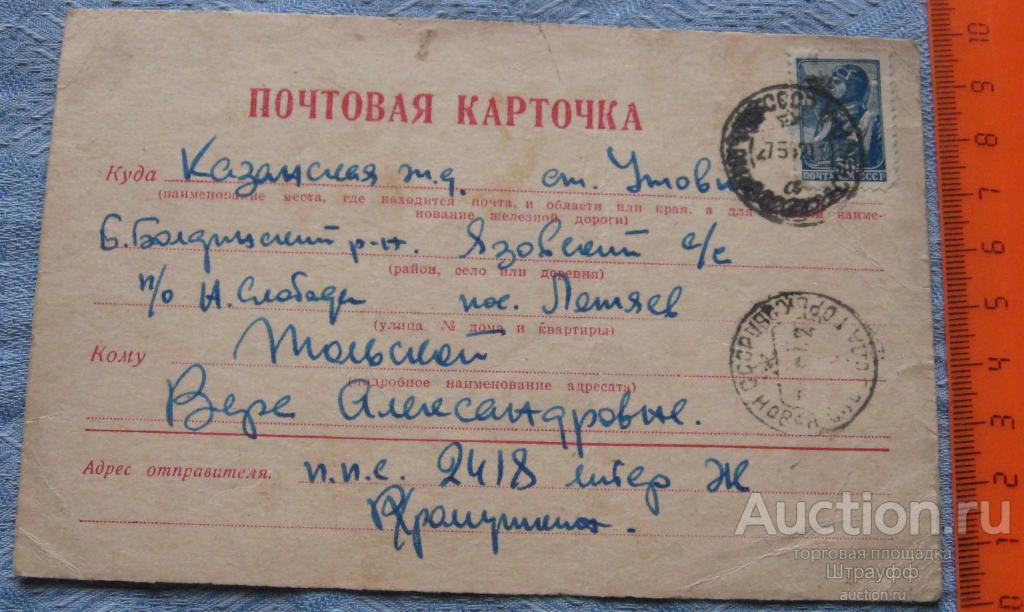 ПОЧТОВАЯ КАРТОЧКА
Куда Казанская ж.д. ст. Ужовка
(наименование места, где находится почта, и области или края, а для наиме-
нование железной дороги)
Б. Болдинский р-н. Язовский с/с
(район, село или деревня)
п/о Н. Слобода пос.
(улица № дома и квартиры)
Кому
(подробное наименование адресата)
Вере Александровне.
Адрес отправителя. п.п.с. 2418 литер Ж
ПОЧТА СССР
27 5 42
НОВАЯ
Auction.ru
торговая площадка
Штрауфф
auction.ru
10
9
8
7
6
5
4
3
2
1